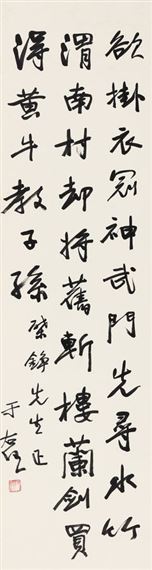 欲掛衣冠神武門先尋水竹
渭南村却將舊斬樓蘭劍買
得黃牛教子孫
棨錚先生正
于右任